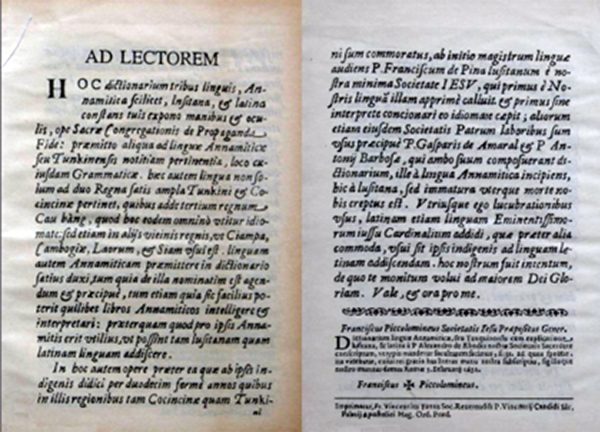 AD LECTOREM
HOC dictionarium tribus linguis, An-
namitica scilicet, lusitana, & latina
constans tuis expono manibus & ocu-
lis, ope Sacræ Congregationis de Propaganda
Fide: præmitto aliqua ad linguæ Annamiticæ
seu Tunkinensis notitiam pertinentia, loco cu-
iusdam Grammaticæ. hæc autem lingua non so-
lum ad duo Regna satis ampla Tunkini & Co-
cincinæ pertinet, quibus adde tertium regnum
Cau bàng, quod hoc eodem omninò vtitur idio-
mate; sed etiam in alijs vicinis regnis, vt Ciampa,
Cambogiæ, Laorum, & Siam vsui est. linguam
autem Annamiticam præmittere in dictionario
satius duxi, tum quia de illa nominatim est agen-
dum & præcipuè, tum etiam quia sic facilius po-
terit quilibet libros Annamiticos intelligere &
interpretari: præterquam quod pro ipsis Anna-
mitis erit vtilius, vt possint tam lusitanam quam
latinam linguam addiscere.
In hoc autem opere præter ea quæ ab ipsis in-
digenis didici per duodecim fermè annos quibus
in illis regionibus tam Cocincinæ quam Tunki-
ni
ni sum commoratus, ab initio magistrum linguæ
audiens P. Franciscum de Pina lusitanum è no-
stra minima Societate IESV, qui primus è No-
stris linguã illam apprimè calluit, & primus sine
interprete concionari eo idiomate cæpit; aliorum
etiam eiusdem Societatis Patrum laboribus sum
vsus præcipuè P. Gasparis de Amaral & P. An-
tonij Barbosæ, qui ambo suum composuerant di-
ctionarium, ille à lingua Annamitica incipiens,
hic à lusitana, sed immatura vterque morte no-
bis creptus est. Vtriusque ego lucubrationibus
vsus, latinam etiam linguam Eminentissimo-
rum iussu Cardinalium addidi, quæ præter alia
commoda, vsui sit ipsis indigenis ad linguam la-
tinam addiscendam. hoc nostrum fuit intentum,
de quo te monitum volui ad maiorem Dei Glo-
riam. Vale, & ora pro me.
Franciscus Piccolomineus Societatis Iesu Præpositus Gener.
Dictionarium linguæ Annamiticæ, seu Tunquinensis cum explicatione
Franciscus ✠ Piccolomineus.
Imprimatur, Fr. Vincentius
Palatij apostolici Mag. Ord. Præd.